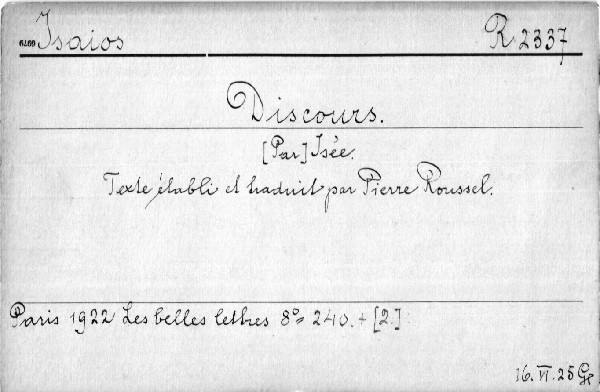 6769 Isaios R 2337
Discours.
[Par] Isée.
Texte établi et traduit par Pierre Roussel.
Paris 1922 Les belles lettres 8° 240. + [2.]
16. VI. 25